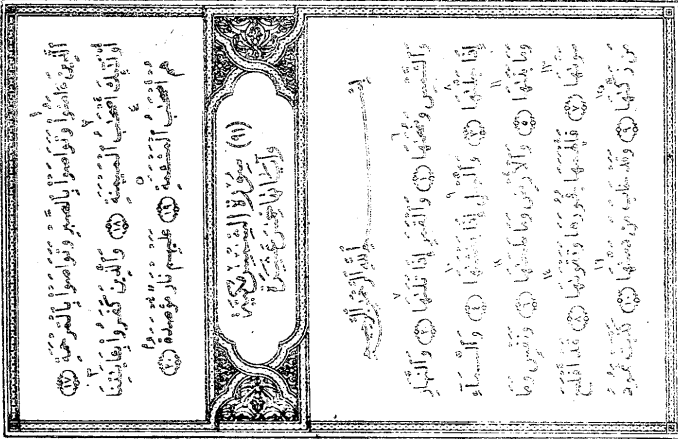 ٱلَّذِينَ ءَامَنُوا۟ وَتَوَاصَوْا۟ بِٱلصَّبْرِ وَتَوَاصَوْا۟ بِٱلْمَرْحَمَةِ ﴿١٧﴾
أُو۟لَٰٓئِكَ أَصْحَٰبُ ٱلْمَيْمَنَةِ ﴿١٨﴾ وَٱلَّذِينَ كَفَرُوا۟ بِـَٔايَٰتِنَا
هُمْ أَصْحَٰبُ ٱلْمَشْـَٔمَةِ ﴿١٩﴾ عَلَيْهِمْ نَارٌ مُّؤْصَدَةٌ ﴿٢٠﴾
(٩١) سُورَةُ الشَّمْسِ مَكِّيَّة
وَآيَاتُهَا خَمْسَ عَشْرَةَ
بِسْمِ ٱللَّهِ ٱلرَّحْمَٰنِ ٱلرَّحِيمِ
وَٱلشَّمْسِ وَضُحَىٰهَا ﴿١﴾ وَٱلْقَمَرِ إِذَا تَلَىٰهَا ﴿٢﴾ وَٱلنَّهَارِ
إِذَا جَلَّىٰهَا ﴿٣﴾ وَٱلَّيْلِ إِذَا يَغْشَىٰهَا ﴿٤﴾ وَٱلسَّمَآءِ
وَمَا بَنَىٰهَا ﴿٥﴾ وَٱلْأَرْضِ وَمَا طَحَىٰهَا ﴿٦﴾ وَنَفْسٍ وَمَا
سَوَّىٰهَا ﴿٧﴾ فَأَلْهَمَهَا فُجُورَهَا وَتَقْوَىٰهَا ﴿٨﴾ قَدْ أَفْلَحَ
مَن زَكَّىٰهَا ﴿٩﴾ وَقَدْ خَابَ مَن دَسَّىٰهَا ﴿١٠﴾ كَذَّبَتْ ثَمُودُ